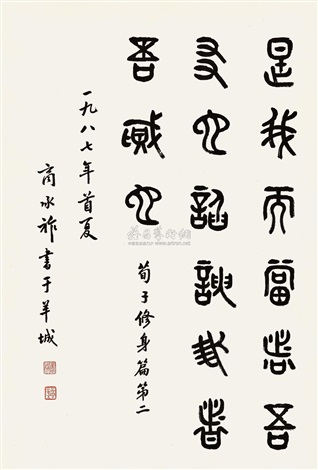 是我而當者吾
友也諂諛我者
吾賊也
荀子修身篇第二
一九八七年首夏
商承祚書于羊城